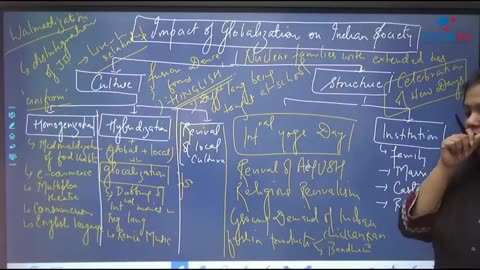 Walmartization
Impact of Globalization on Indian Society
disintegration
of JF
Live-In
relation
Nuclear families with extended ties
Culture
fusion Dance
forms
HINGLISH
Structure
Celebration
of New Days
lang being
taught at school
uniform
Homogenization
Hybridization
Revival
of local
Culture
Int'nal yoga Day
Institution
McDonaldization
of food habits
global + local
glocalization
Revival of AYUSH
Religious Revivalism
family
e-commerce
Multiplex
theatre
Consumerism
English language
Dubbing of
Int'nal movies in
Reg lang
Remix Music
for
Growing Demand of Indian
fashion products